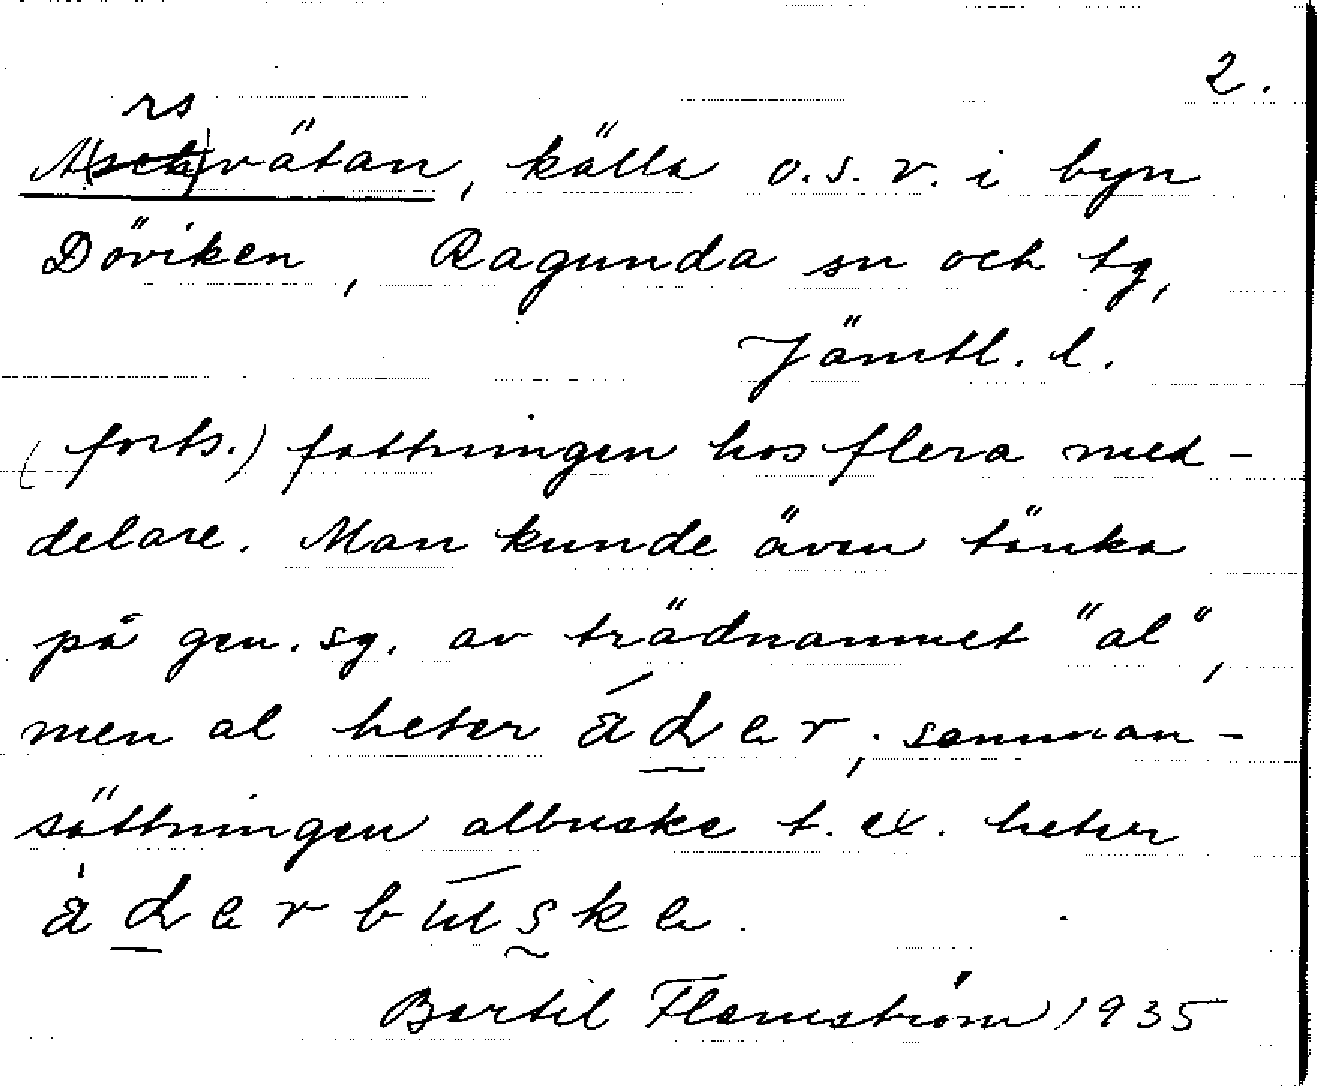 2.
rs
A(sch)vätan, källa o.s.v. i byn
Döviken, Ragunda sn och tg,
Jämtl. l.
(forts.) fattningen hos flera med-
delare. Man kunde även tänka
på gen. sg. av trädnamnet "al",
men al heter åder; samman-
sättningen albuske t. ex. heter
åderbuske.
Bertil Flemström 1935